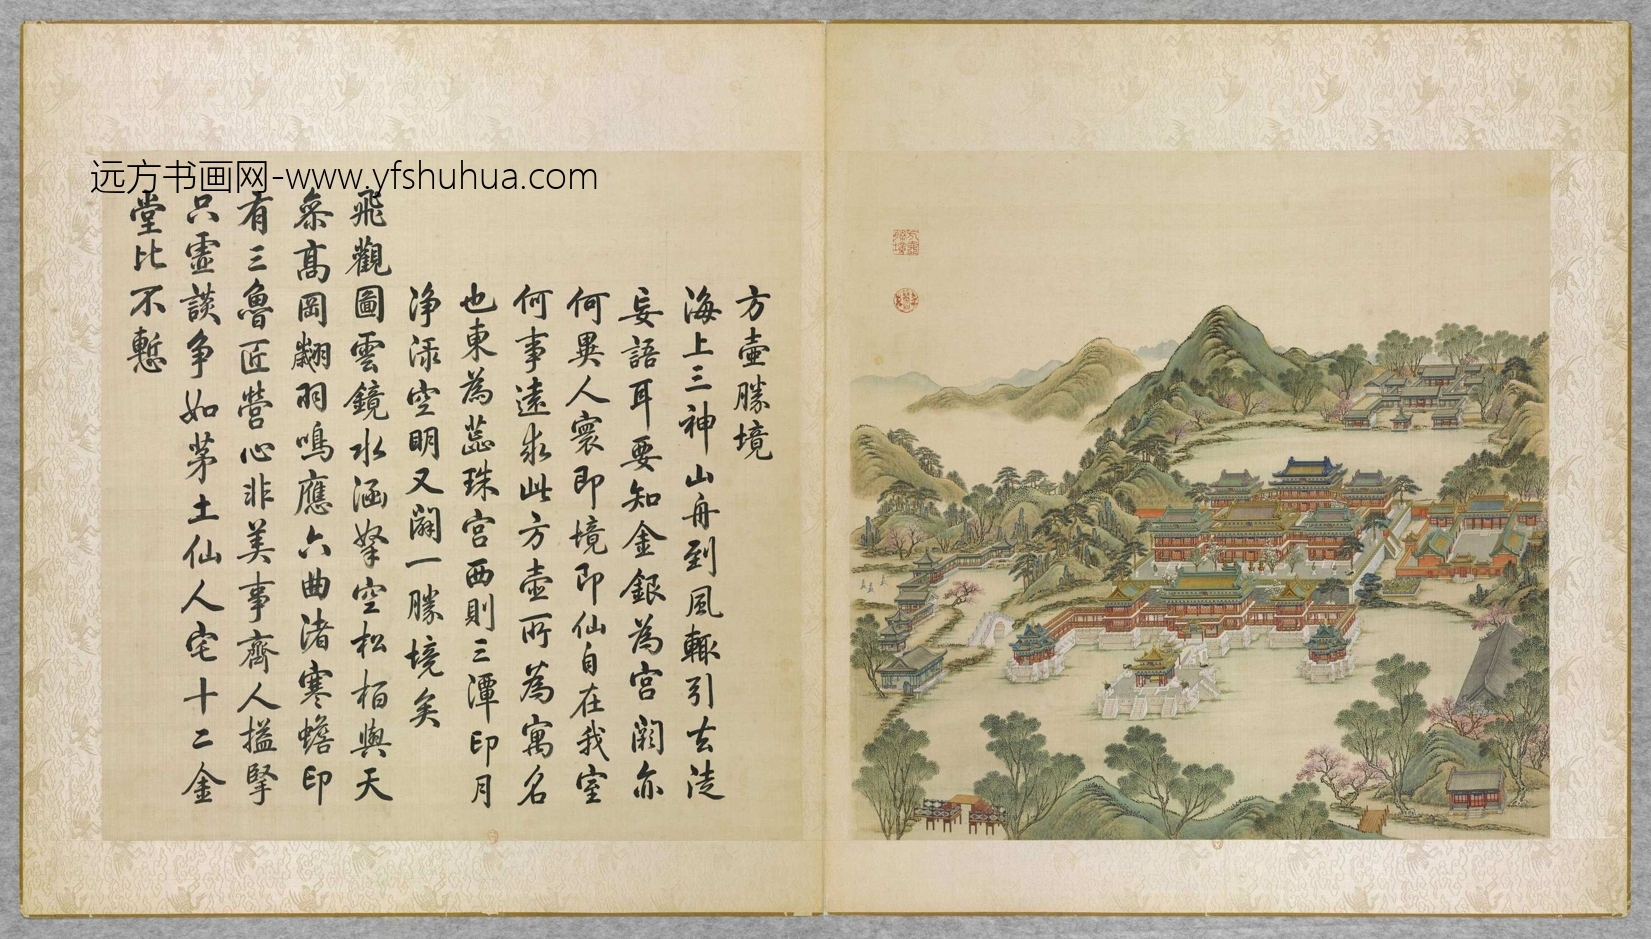 远方书画网-www.yfshuhua.com
方壺勝境
海上三神山舟到風輒引去徒
妄語耳要知金銀為宮闕亦
何異人寰即境即仙自在我室
何事遠求此方壺所為寓名
也東為蕊珠宮西則三潭印月
淨淥空明又闢一勝境矣
飛觀圖雲鏡水涵拏空松栢與天
叅高岡翽羽鳴應六曲渚寒蟾印
有三魯匠營心非美事齊人搤掔
只虛談爭如茅土仙人宅十二金
堂比不慙